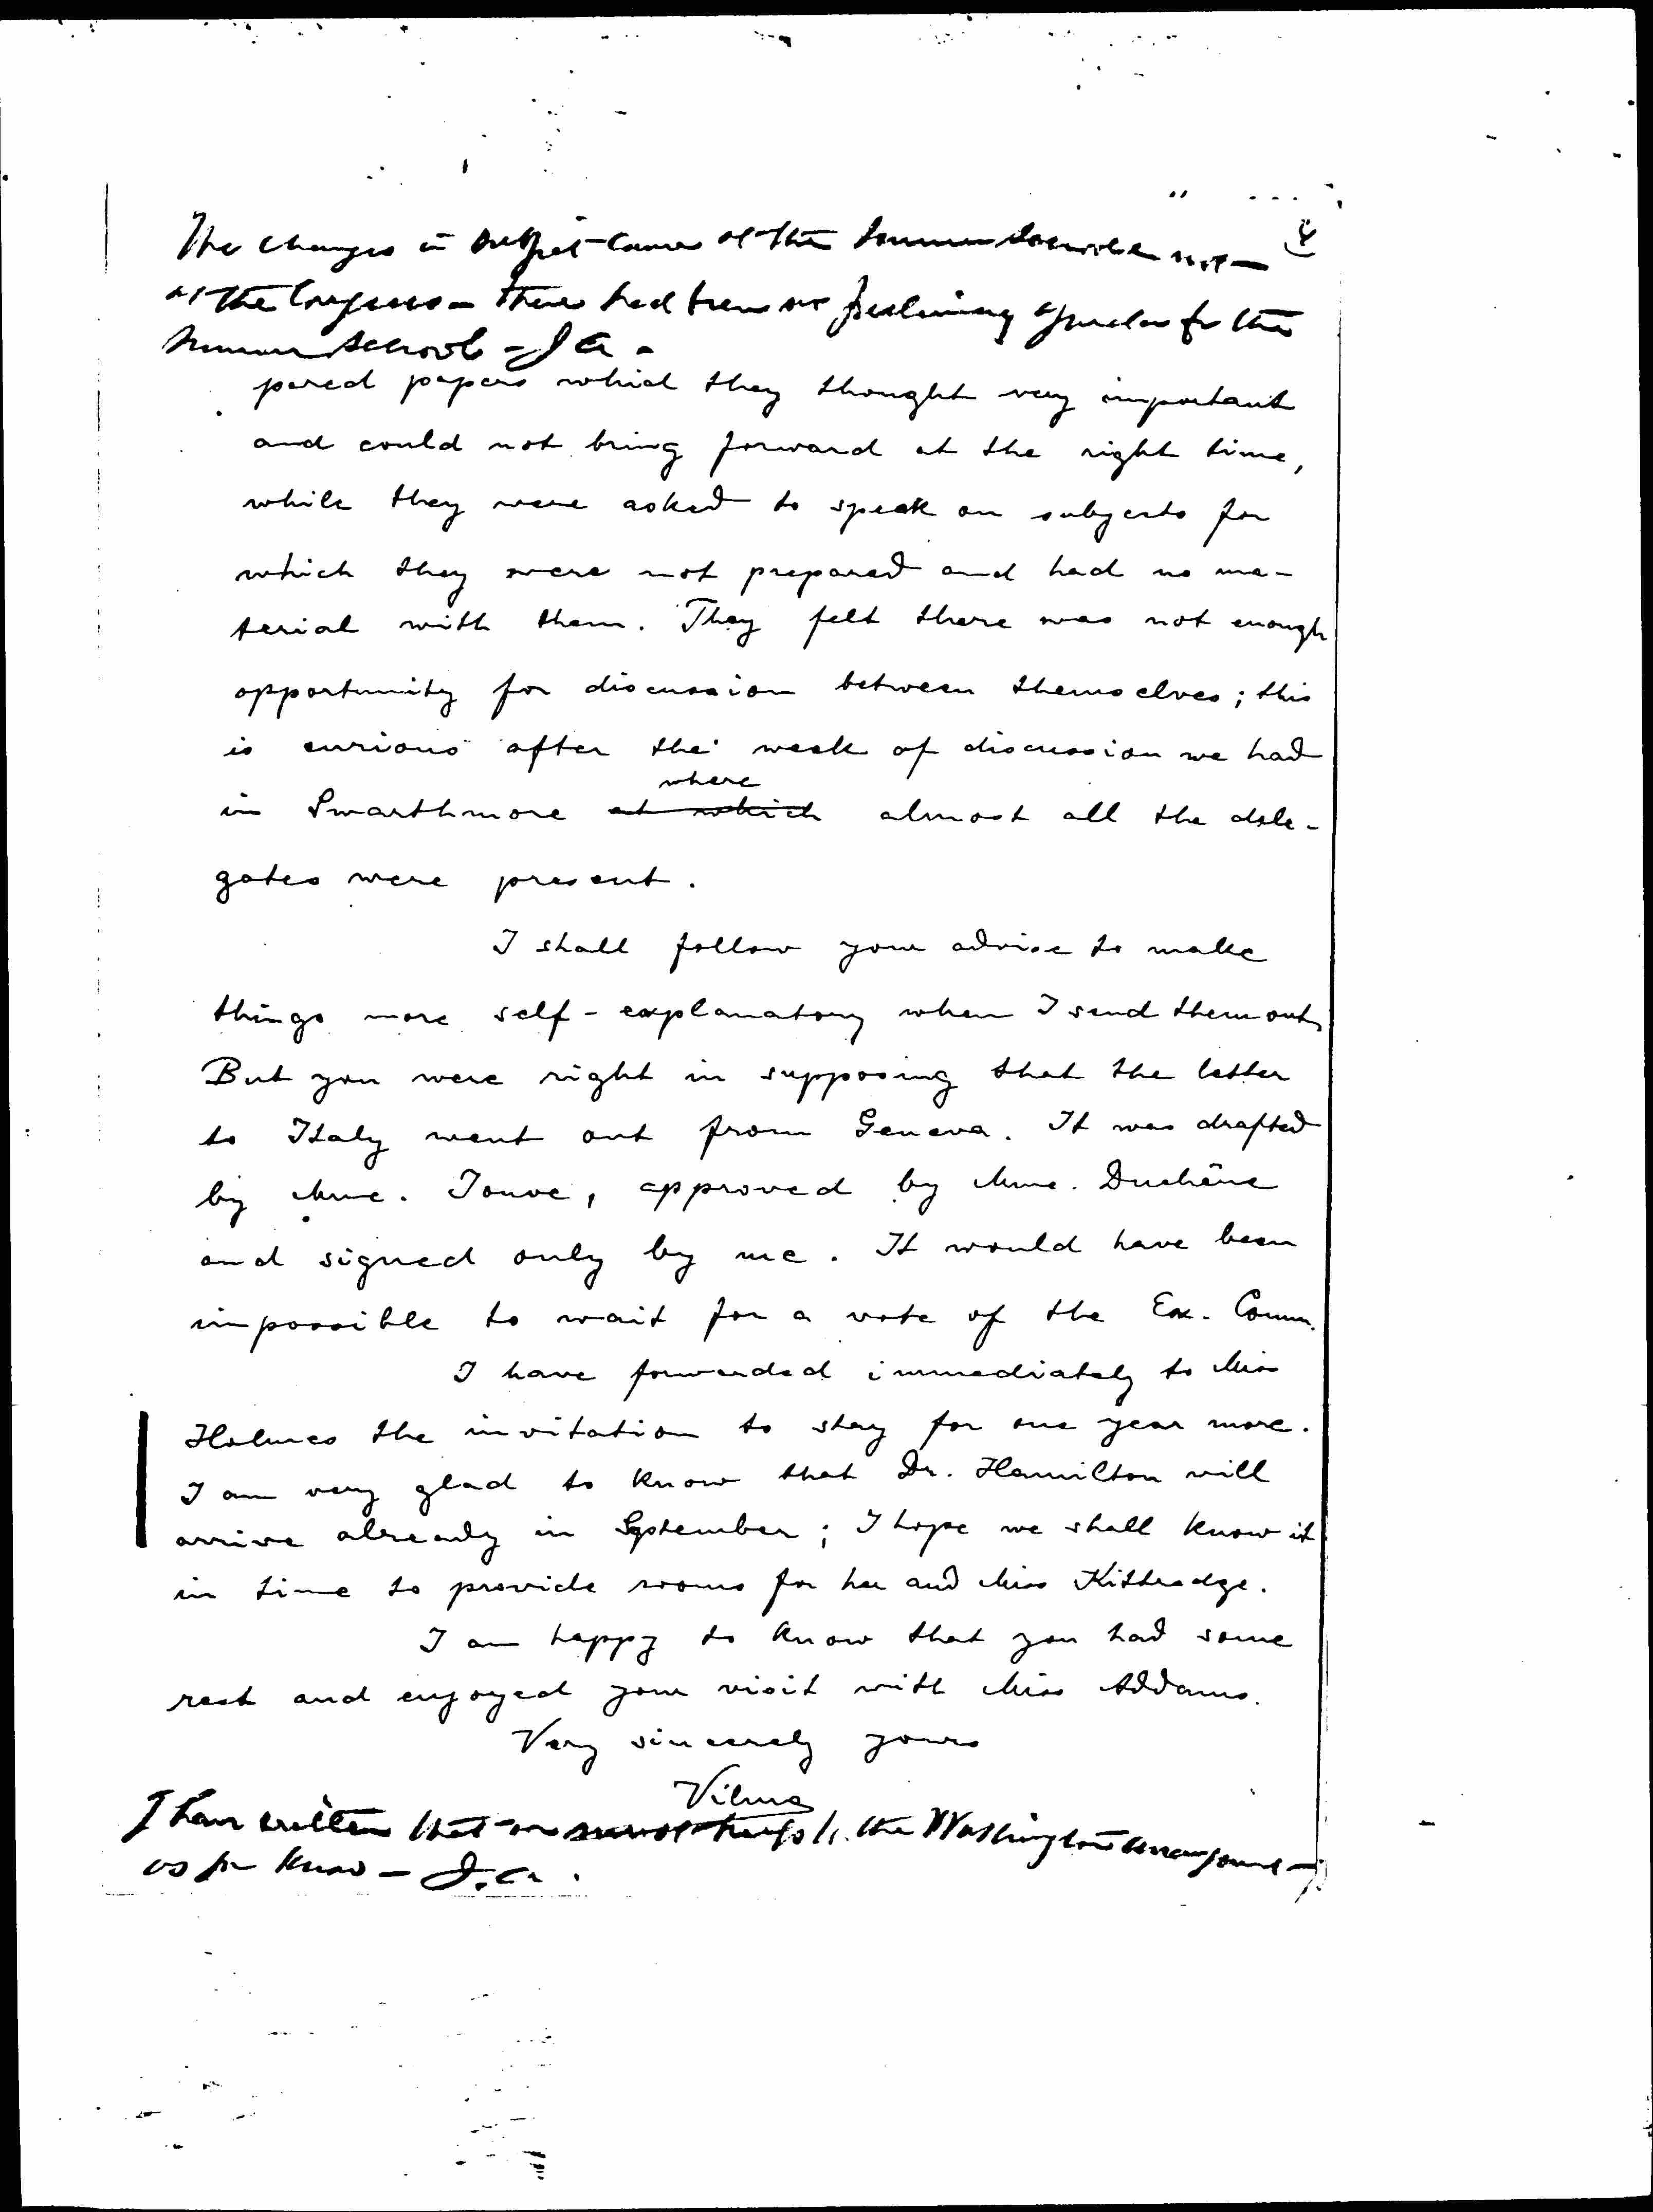 The changes in subject came at the Summer School not
at the Congress – there had been no preliminary for the
Summer School – J A –
pared papers which they thought very important
and could not bring forward at the right time,
while they were asked to speak on subjects for
which they were not prepared and had no ma-
terial with them. They felt there was not enough
opportunity for discussion between themselves; this
is curious after the week of discussion we had
where
in Swarthmore at which almost all the dele-
gates were present.
I shall follow your advise to make
things more self-explanatory when I send them out.
But you were right in supposing that the letter
to Italy went out from Geneva. It was drafted
by Mme. Jouve, approved by Mme. Duchêne
and signed only by me. It would have been
impossible to wait for a vote of the Ex. Comm.
I have forwarded immediately to Miss
Holmes the invitation to stay for one year more.
I am very glad to know that Dr. Hamilton will
arrive already in September; I hope we shall know it
in time to provide rooms for her and Miss Kittredge.
I am happy to know that you had some
rest and enjoyed your visit with Miss Addams.
Very sincerely yours
Vilma
I have written that the Washington
as you know – J. A.